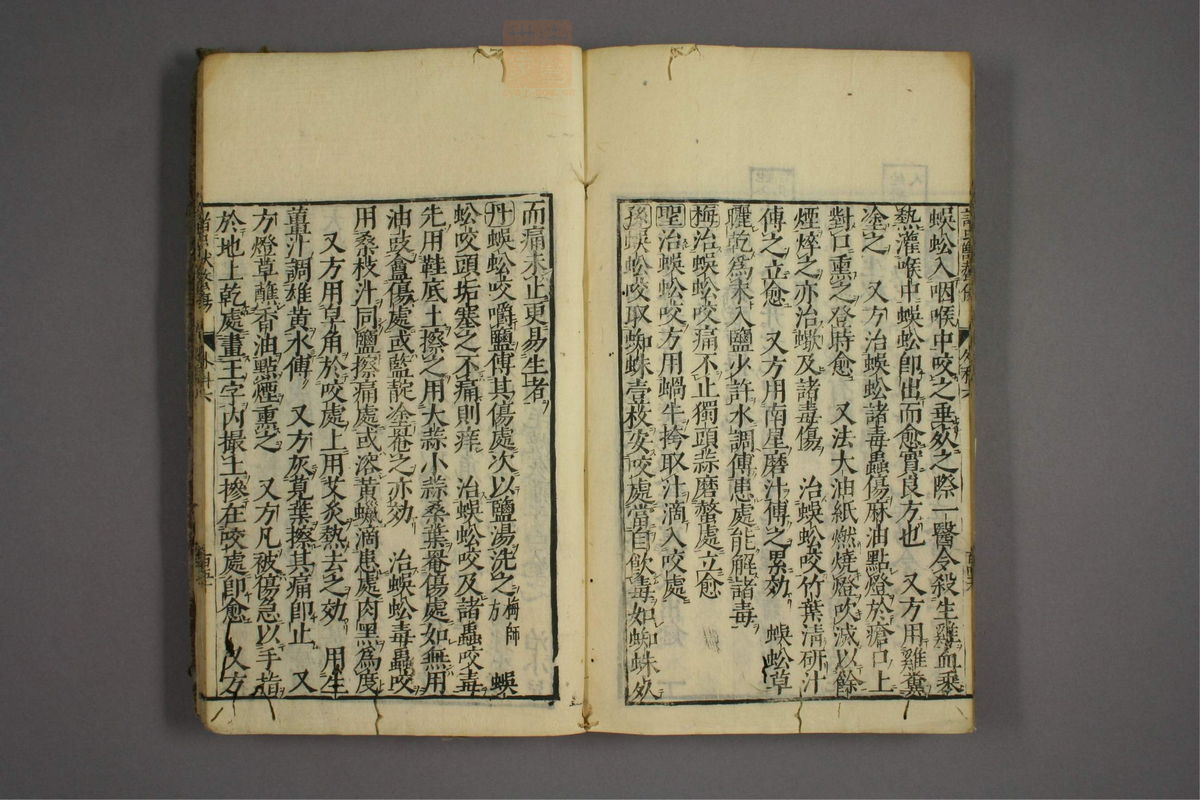 蜈蚣入咽喉中咬之垂死之際一醫令殺生雞血乘
熱灌喉中蜈蚣即出而愈實良方也　又方用雞糞
塗之　又方治蜈蚣諸毒蟲傷麻油點燈於瘡口上
對口熏之登時愈　又法大油紙燃燒燈吹滅以餘
煙焠之亦治蠍及諸毒傷　治蜈蚣咬竹葉清研汁
傅之立愈　又方用南星磨汁傅之累効　蜈蚣草
乾為末入鹽少許水調傅患處能解諸毒
梅治蜈蚣咬痛不止獨頭蒜磨螫處立愈
聖治蜈蚣咬方用蝸牛挎取汁滴入咬處
孫蜈蚣咬取蜘蛛壹枚安咬處當自飲毒如蜘蛛死
而痛未止更易生者
丹蜈蚣咬嚼鹽傅其傷處次以鹽湯洗之梅師方　蜈
蚣咬頭垢塞之不痛則痒　治蜈蚣咬及諸蟲咬毒
先用鞋底土擦之用大蒜小蒜桑葉罨傷處如無用
油豉盦傷處或藍靛塗罨之亦効　治蜈蚣毒蟲咬
用桑枝汁同鹽擦痛處或溶黃蠟滴患處肉黑為度
又方用皁角於咬處上用艾灸熱去之効　用生
薑汁調雄黃水傅　又方灰莧葉擦其痛即止　又
方燈草蘸香油點煙熏之　又方凡被傷急以手指
於地上乾處畫王字內撮土摻在咬處即愈　又方